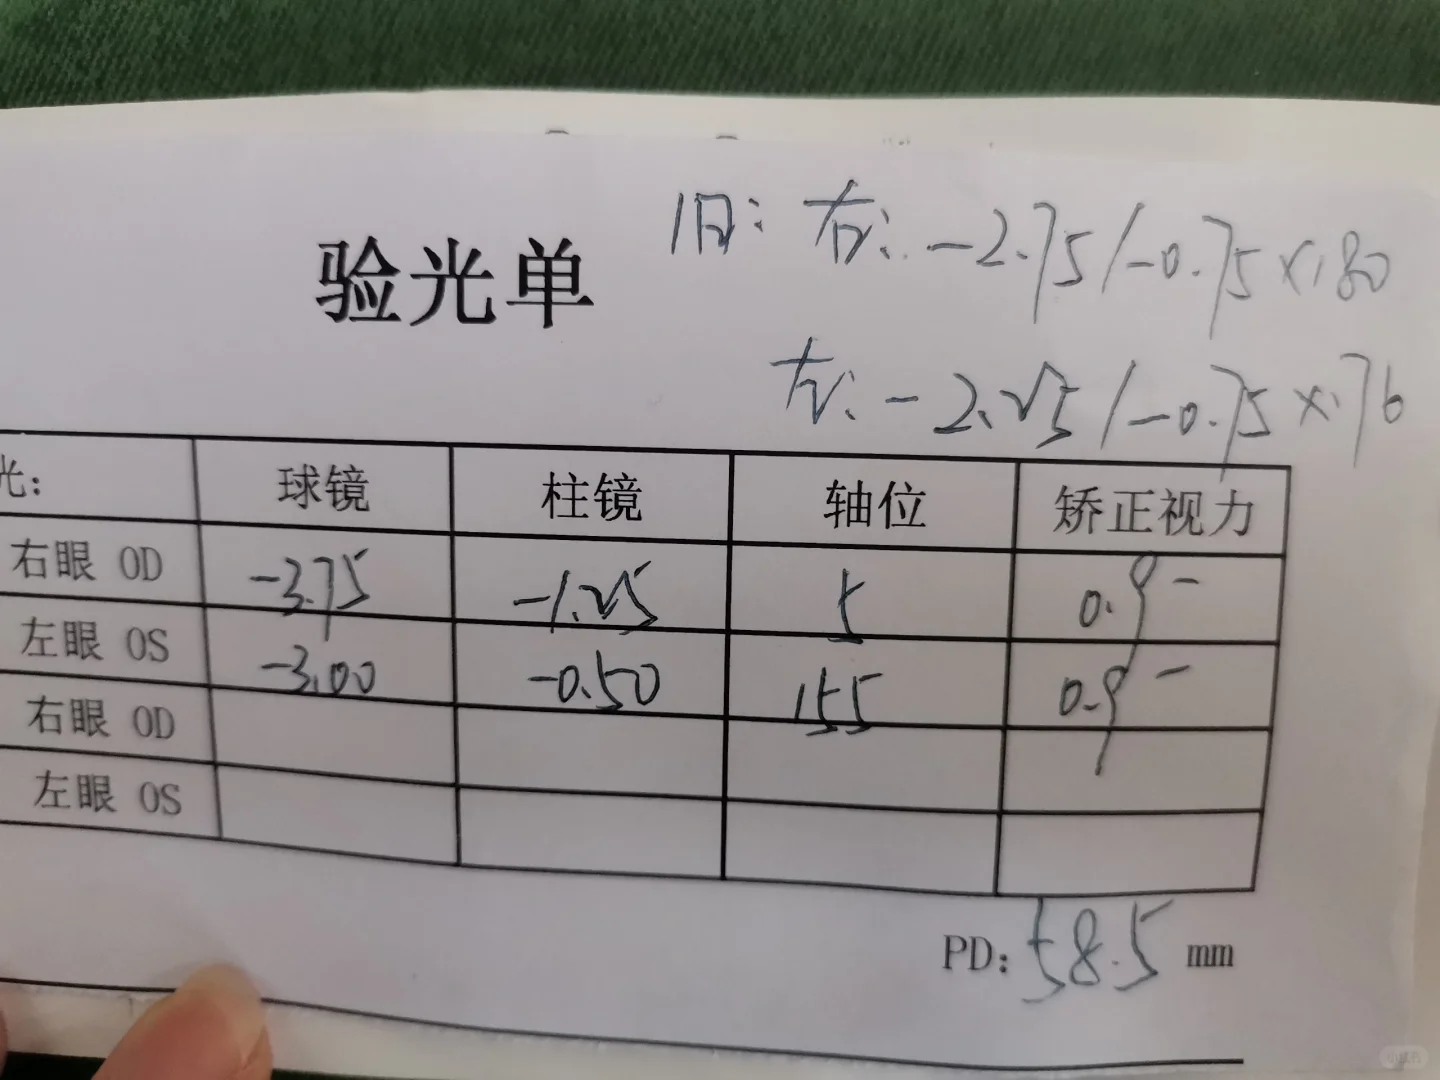 旧: 右: -2.75/-0.75×180
验光单
左: -2.25/-0.75×176
光: 球镜 柱镜 轴位 矫正视力
右眼 OD -3.75 -1.25 5 0.9-
左眼 OS -3.00 -0.50 155 0.9-
右眼 OD
左眼 OS
PD: 58.5 mm
小红书